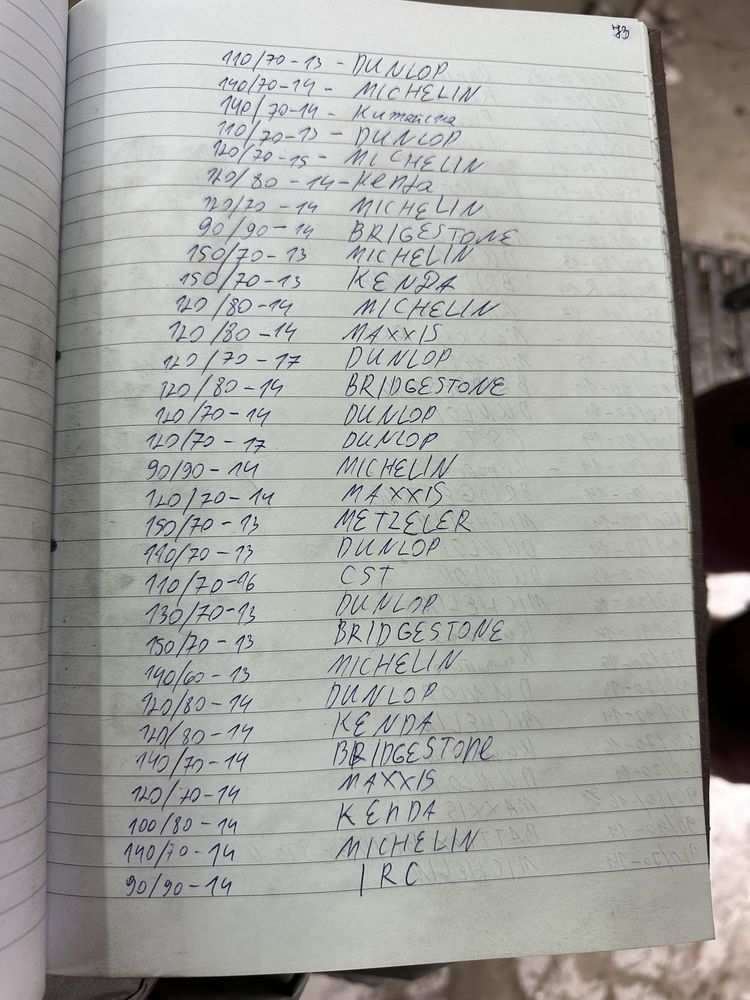 73
110/70-13 - DUNLOP
140/70-14 - MICHELIN
140/70-14 - Китайска
110/70-13 - DUNLOP
120/70-15 - MICHELIN
120/80-14 - Kenda
120/70-14 MICHELIN
90/90-14 BRIGESTONE
150/70-13 MICHELIN
150/70-13 KENDA
120/80-14 MICHELIN
120/80-14 MAXXIS
120/70-17 DUNLOP
120/80-14 BRIDGESTONE
120/70-14 DUNLOP
120/70-17 DUNLOP
90/90-14 MICHELIN
120/70-14 MAXXIS
150/70-13 METZELER
110/70-13 DUNLOP
110/70-16 CST
130/70-13 DUNLOP
150/70-13 BRIDGESTONE
140/60-13 MICHELIN
120/80-14 DUNLOP
120/80-14 KENDA
140/70-14 BRIDGESTONE
120/70-14 MAXXIS
100/80-14 KENDA
140/70-14 MICHELIN
90/90-14 IRC